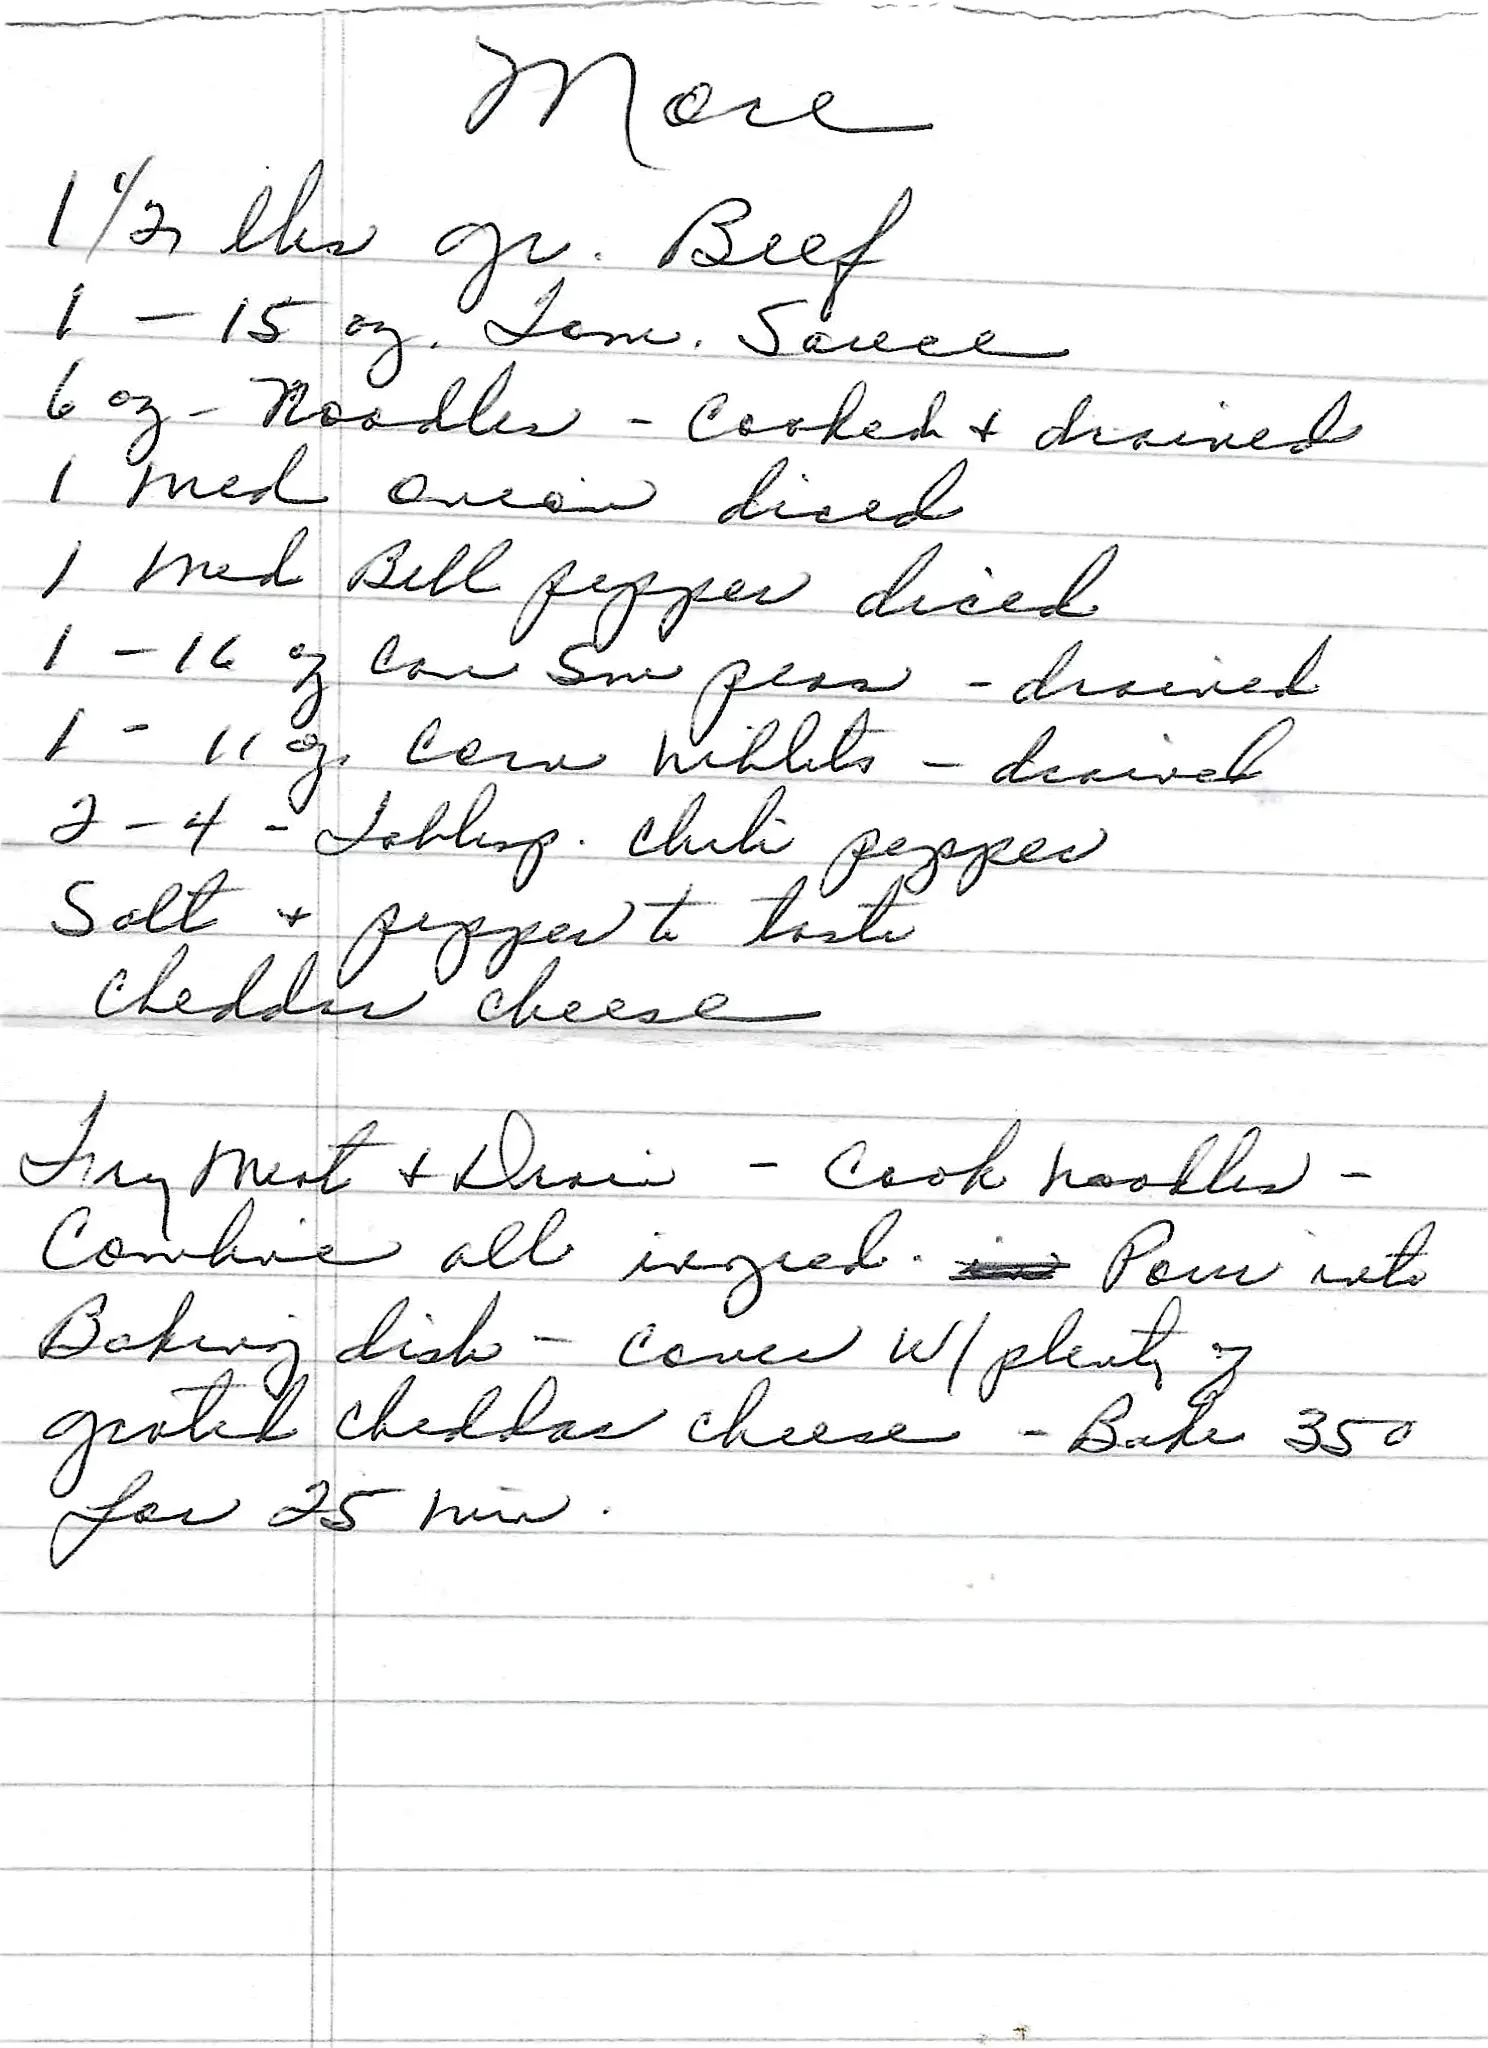 More
1 1/2 lbs gr. Beef
1 - 15 oz. Tom. Sauce
6 oz - Noodles - Cooked + drained
1 med onion diced
1 med Bell pepper diced
1 - 16 oz can Sm peas - drained
1 - 11 oz. Corn niblets - drained
2 - 4 - Tablesp. chili pepper
Salt + pepper to taste
Cheddar cheese
Fry Meat + Drain - Cook noodles -
Combine all ingred. Pour into
Baking dish - cover w/ plenty of
grated cheddar cheese - Bake 350
for 25 min.